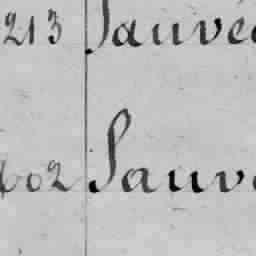 213 Sauvé
602 Sauv